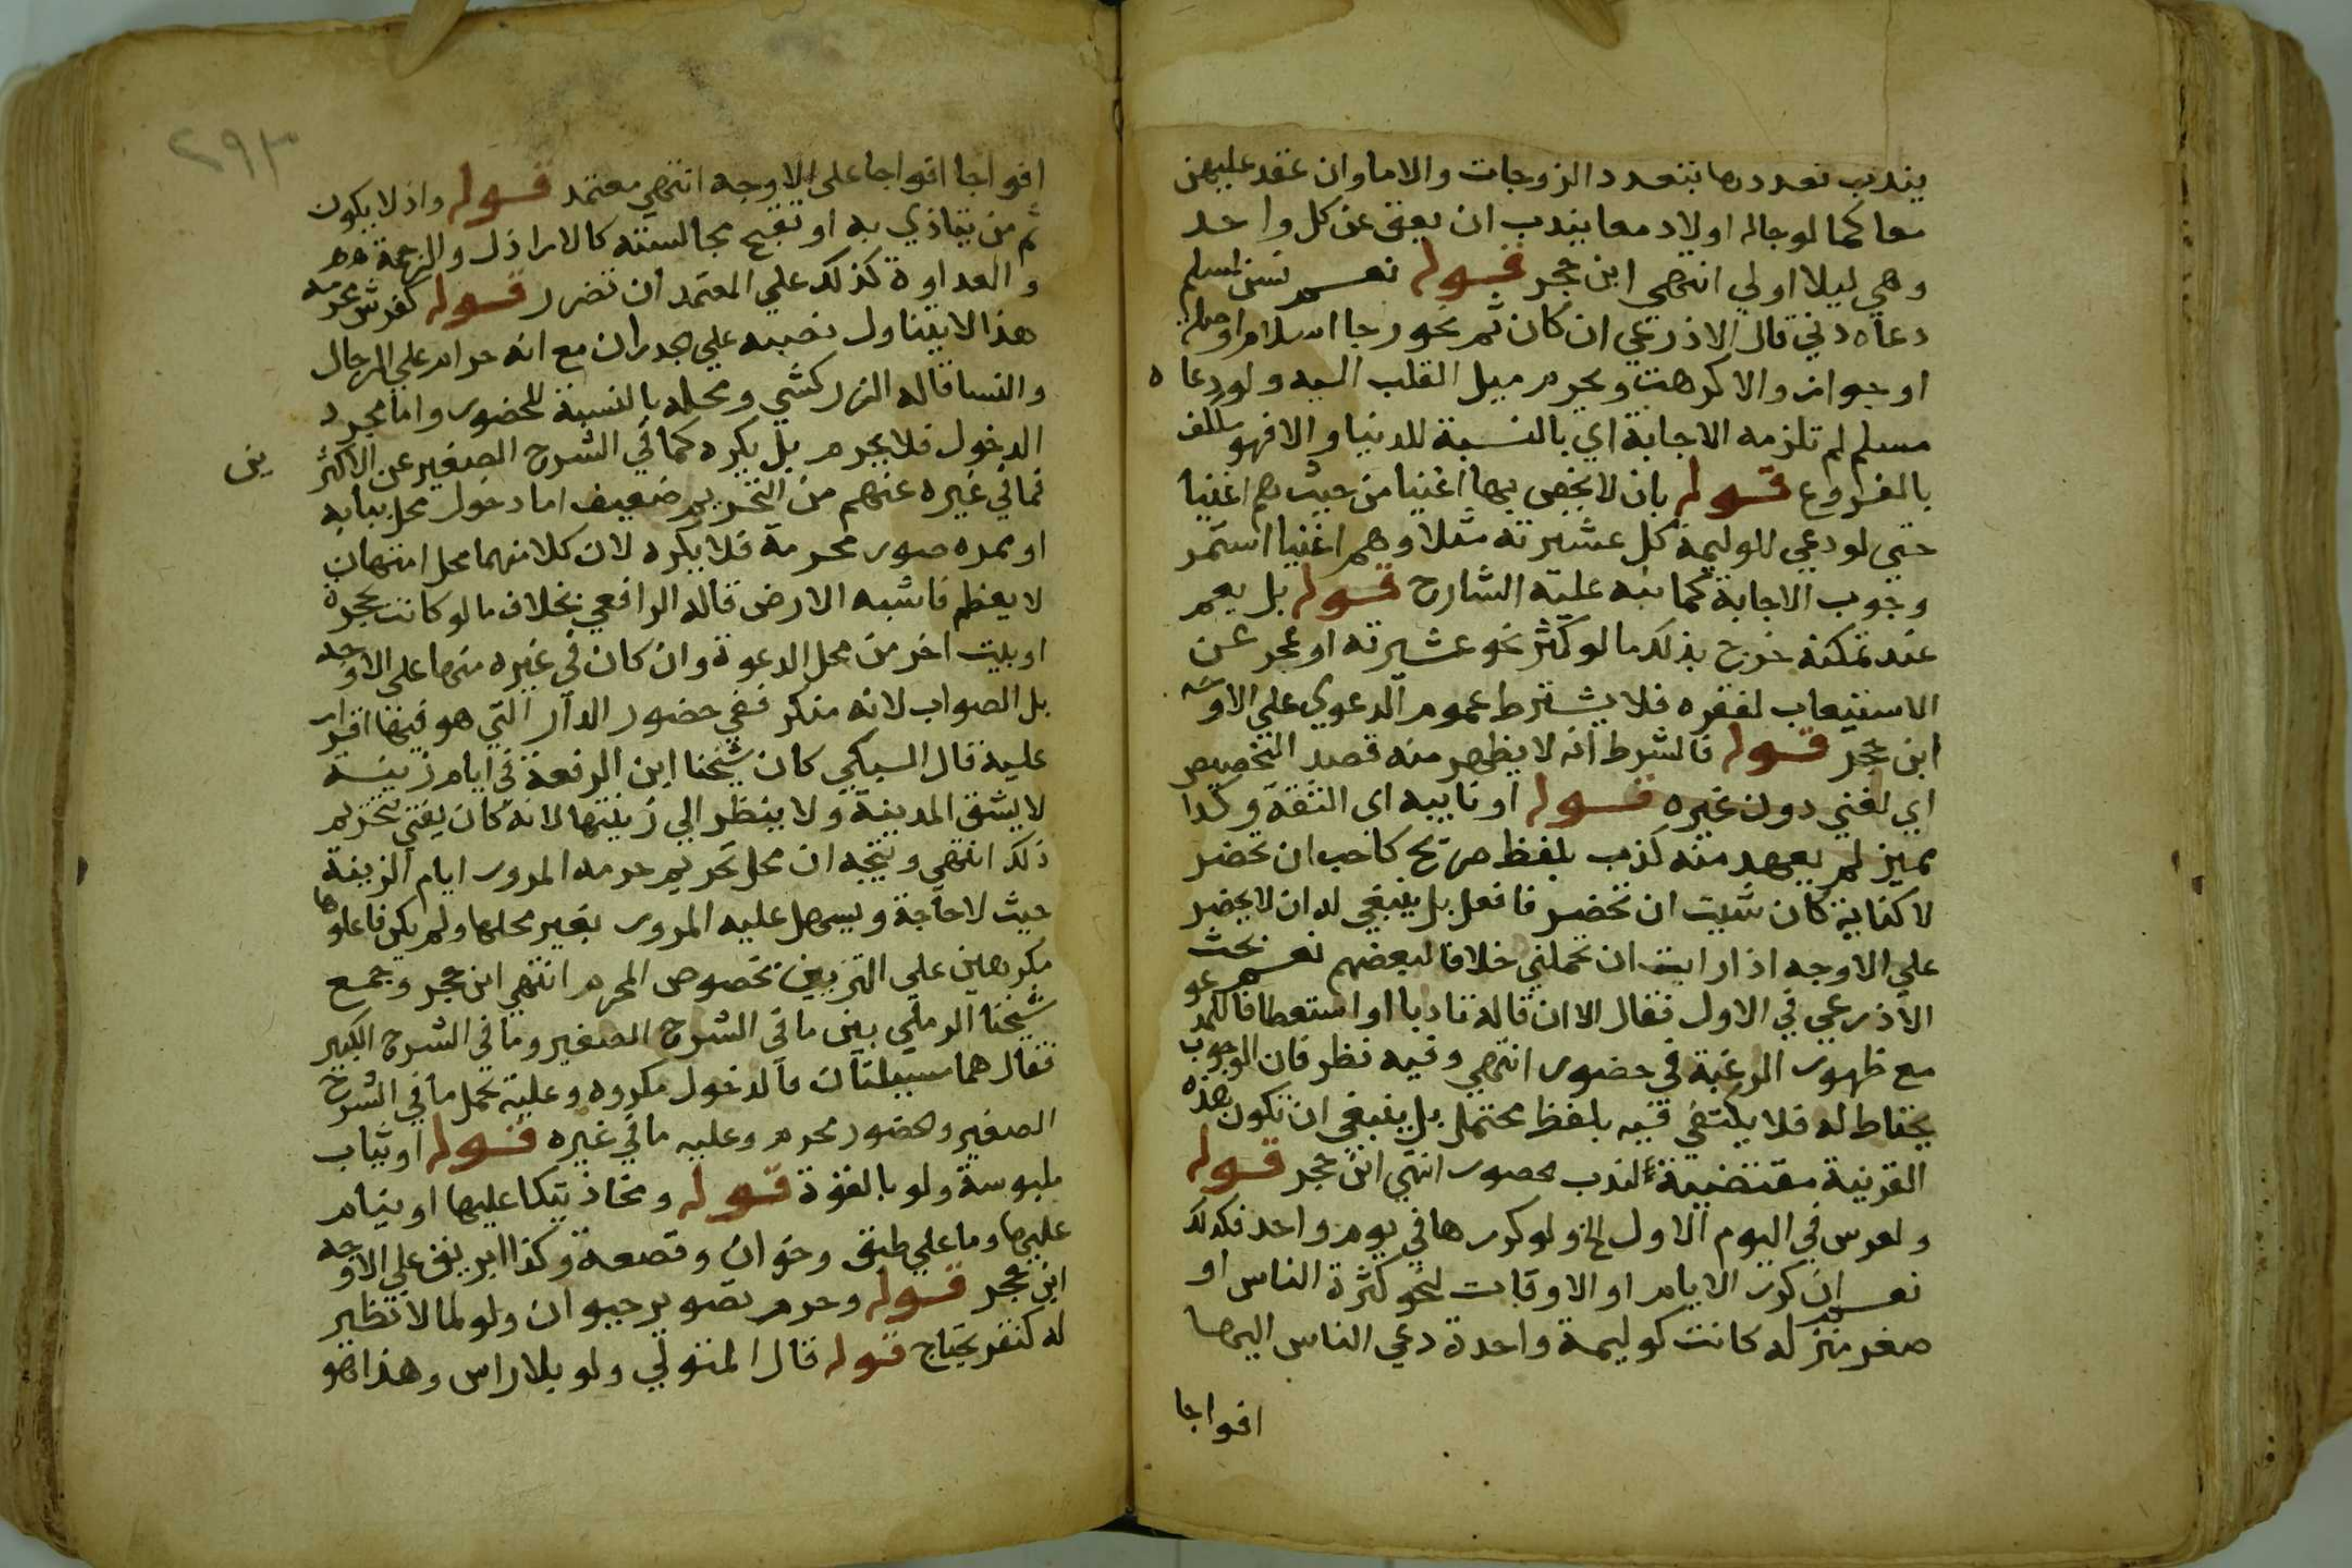 يندب تعددها بتعدد الزوجات والاما وان عقد عليهن
معا كما لو جاله اولاد معا يندب ان يعق عن كل واحد
وهي ليلا اولي انتهي ابن حجر قوله نعم تسن لمسلم
دعاه ذمي قال الاذرعي ان كان ثم نحو رجا اسلام او صلة
او جوار والا كرهت ويحرم ميل القلب اليه ولو دعا ه
مسلم لم تلزمه الاجابة اي بالنسبة للدنيا والا فهو مكلف
بالفروع قوله بان لا يخص بها اغنيا من حيث هم اغنيا
حتي لو دعي للوليمة كل عشيرته مثلا وهم اغنيا استمر
وجوب الاجابة كما نبه عليه الشارح قوله بل يعم
عند تمكنه خرج بذلك ما لو كثر نحو عشيرته او عجز عن
الاستيعاب لفقره فلا يشترط عموم الدعوي علي الاوجه
ابن حجر قوله فالشرط انه لا يظهر منه قصد التخصيص
اي لغني دون غيره قوله او نايبه اى الثقة وكذا
مميز لم يعهد منه كذب بلفظ صريح كاحب ان تحضر
لا كناية كان شيت ان تحضر فافعل بل ينبغي له ان لا يحضر
علي الاوجه اذا رايت ان تحملني خلافا لبعضهم نعم بحث
الاذرعي في الاول فقال الا ان قاله تادبا او استعطافا للمدعو
مع ظهور الرغبة في حضوره انتهي وفيه نظر فان الوجوب
يحتاط له فلا يكتفي فيه بلفظ محتمل بل ينبغي ان تكون هذه
القرينة مقتضية لندب حضوره انتهي ابن حجر قوله
ولعرس في اليوم الاول الخ ولو كررها في يوم واحد فكذلك
نعم ان كرر الايام او الاوقات لنحو كثرة الناس او
صغر منزله كانت كوليمة واحدة دعي الناس اليها
افواجا
٢٩٣
افواجا افواجا على الاوجه انتهي معتمد قوله واذ لا يكون
ثم من يتاذي به او تقبح مجالسته كالاراذل والزحمة
والعداوة كذلك علي المعتمد ان تضرر قوله كفرش محرمه
هذا لا يتناول نصبه علي جدران مع انه حرام علي الرجال
والنسا قاله الزركشي ومحله بالنسبة للحضور واما مجرد
الدخول فلا يحرم بل يكره كما في الشرح الصغير عن الاكثرين
فما في غيره عنهم من التحريم ضعيف اما دخول محل ببابه
او ممره صور محرمة فلا يكره لان كلا منهما محل امتهان
لا يعظم فاشبه الارض قاله الرافعي بخلاف ما لو كانت بحجرة
او بيت اخر من محل الدعوة وان كان في غيره منها على الاوجه
بل الصواب لانه منكر ففي حضور الدار التي هو فيها اقرار
عليه قال السبكي كان شيخنا ابن الرفعة في ايام زينة
لا يشق المدينة ولا ينظر الي زينتها لانه كان يفتي بتحريم
ذلك انتهي ويتجه ان محل تحريم حرمه المرور ايام الزينة
حيث لا حاجة ويسهل عليه المرور بغير محلها ولم يكن فاعلوها
مكرهين علي التزيين بخصوص المحرم انتهي ابن حجر وجمع
شيخنا الرملي بين ما في الشرح الصغير وما في الشرح الكبير
فقال هما مسيلتان فالدخول مكروه وعليه يحمل ما في الشرح
الصغير والحضور محرم وعليه ما في غيره قوله او ثياب
ملبوسة ولو بالقوة قوله ومخاذ يتكا عليها او ينام
عليها وما علي طبق وخوان وقصعة وكذا ابريق علي الاوجه
ابن حجر قوله وحرم تصوير حيوان ولو لما لا نظير
له كنقر يحتاج قوله قال المتولي ولو بلا راس وهذا هو